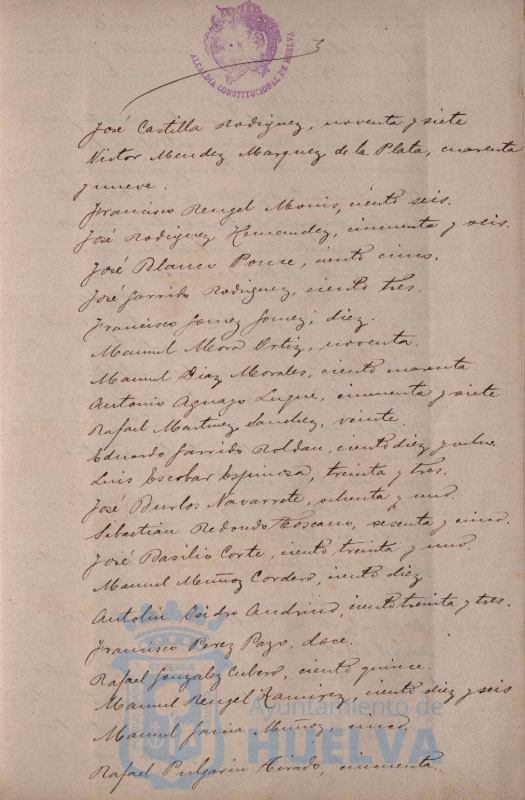 3
ALCALDIA CONSTITUCIONAL DE HUELVA
José Castilla Rodriguez, noventa y siete
Victor Mendez Marquez de la Plata, cuarenta
y nueve.
Francisco Rengel Monis, ciento seis.
José Rodriguez Hernandez, cincuenta y seis.
José Blanco Ponce, ciento cinco.
José Garrido Rodriguez, ciento tres.
Francisco Gomez Gomez, diez.
Manuel Mora Ortiz, noventa.
Manuel Diaz Morales, ciento cuarenta.
Antonio Aguayo Luque, cincuenta y siete
Rafael Martinez Sanchez, veinte.
Eduardo Garrido Roldan, ciento diez y
Luis Escobar Espinosa, treinta y tres.
José Burlos Navarrete, ochenta y uno.
Sebastian Redondo Toscano, sesenta y cinco.
José Basilio Corte, ciento treinta y uno.
Manuel Muñoz Cordero, ciento diez.
Antolin Isidro Andrino, ciento treinta y tres.
Francisco Perez Pazo, doce.
Rafael Gonzalez Cubero, ciento quince.
Manuel Rengel Ramirez, ciento diez y seis
Manuel Garcia Muñoz, cinco.
Rafael Pulgarin Tirado, cincuenta.
Ayuntamiento de
HUELVA